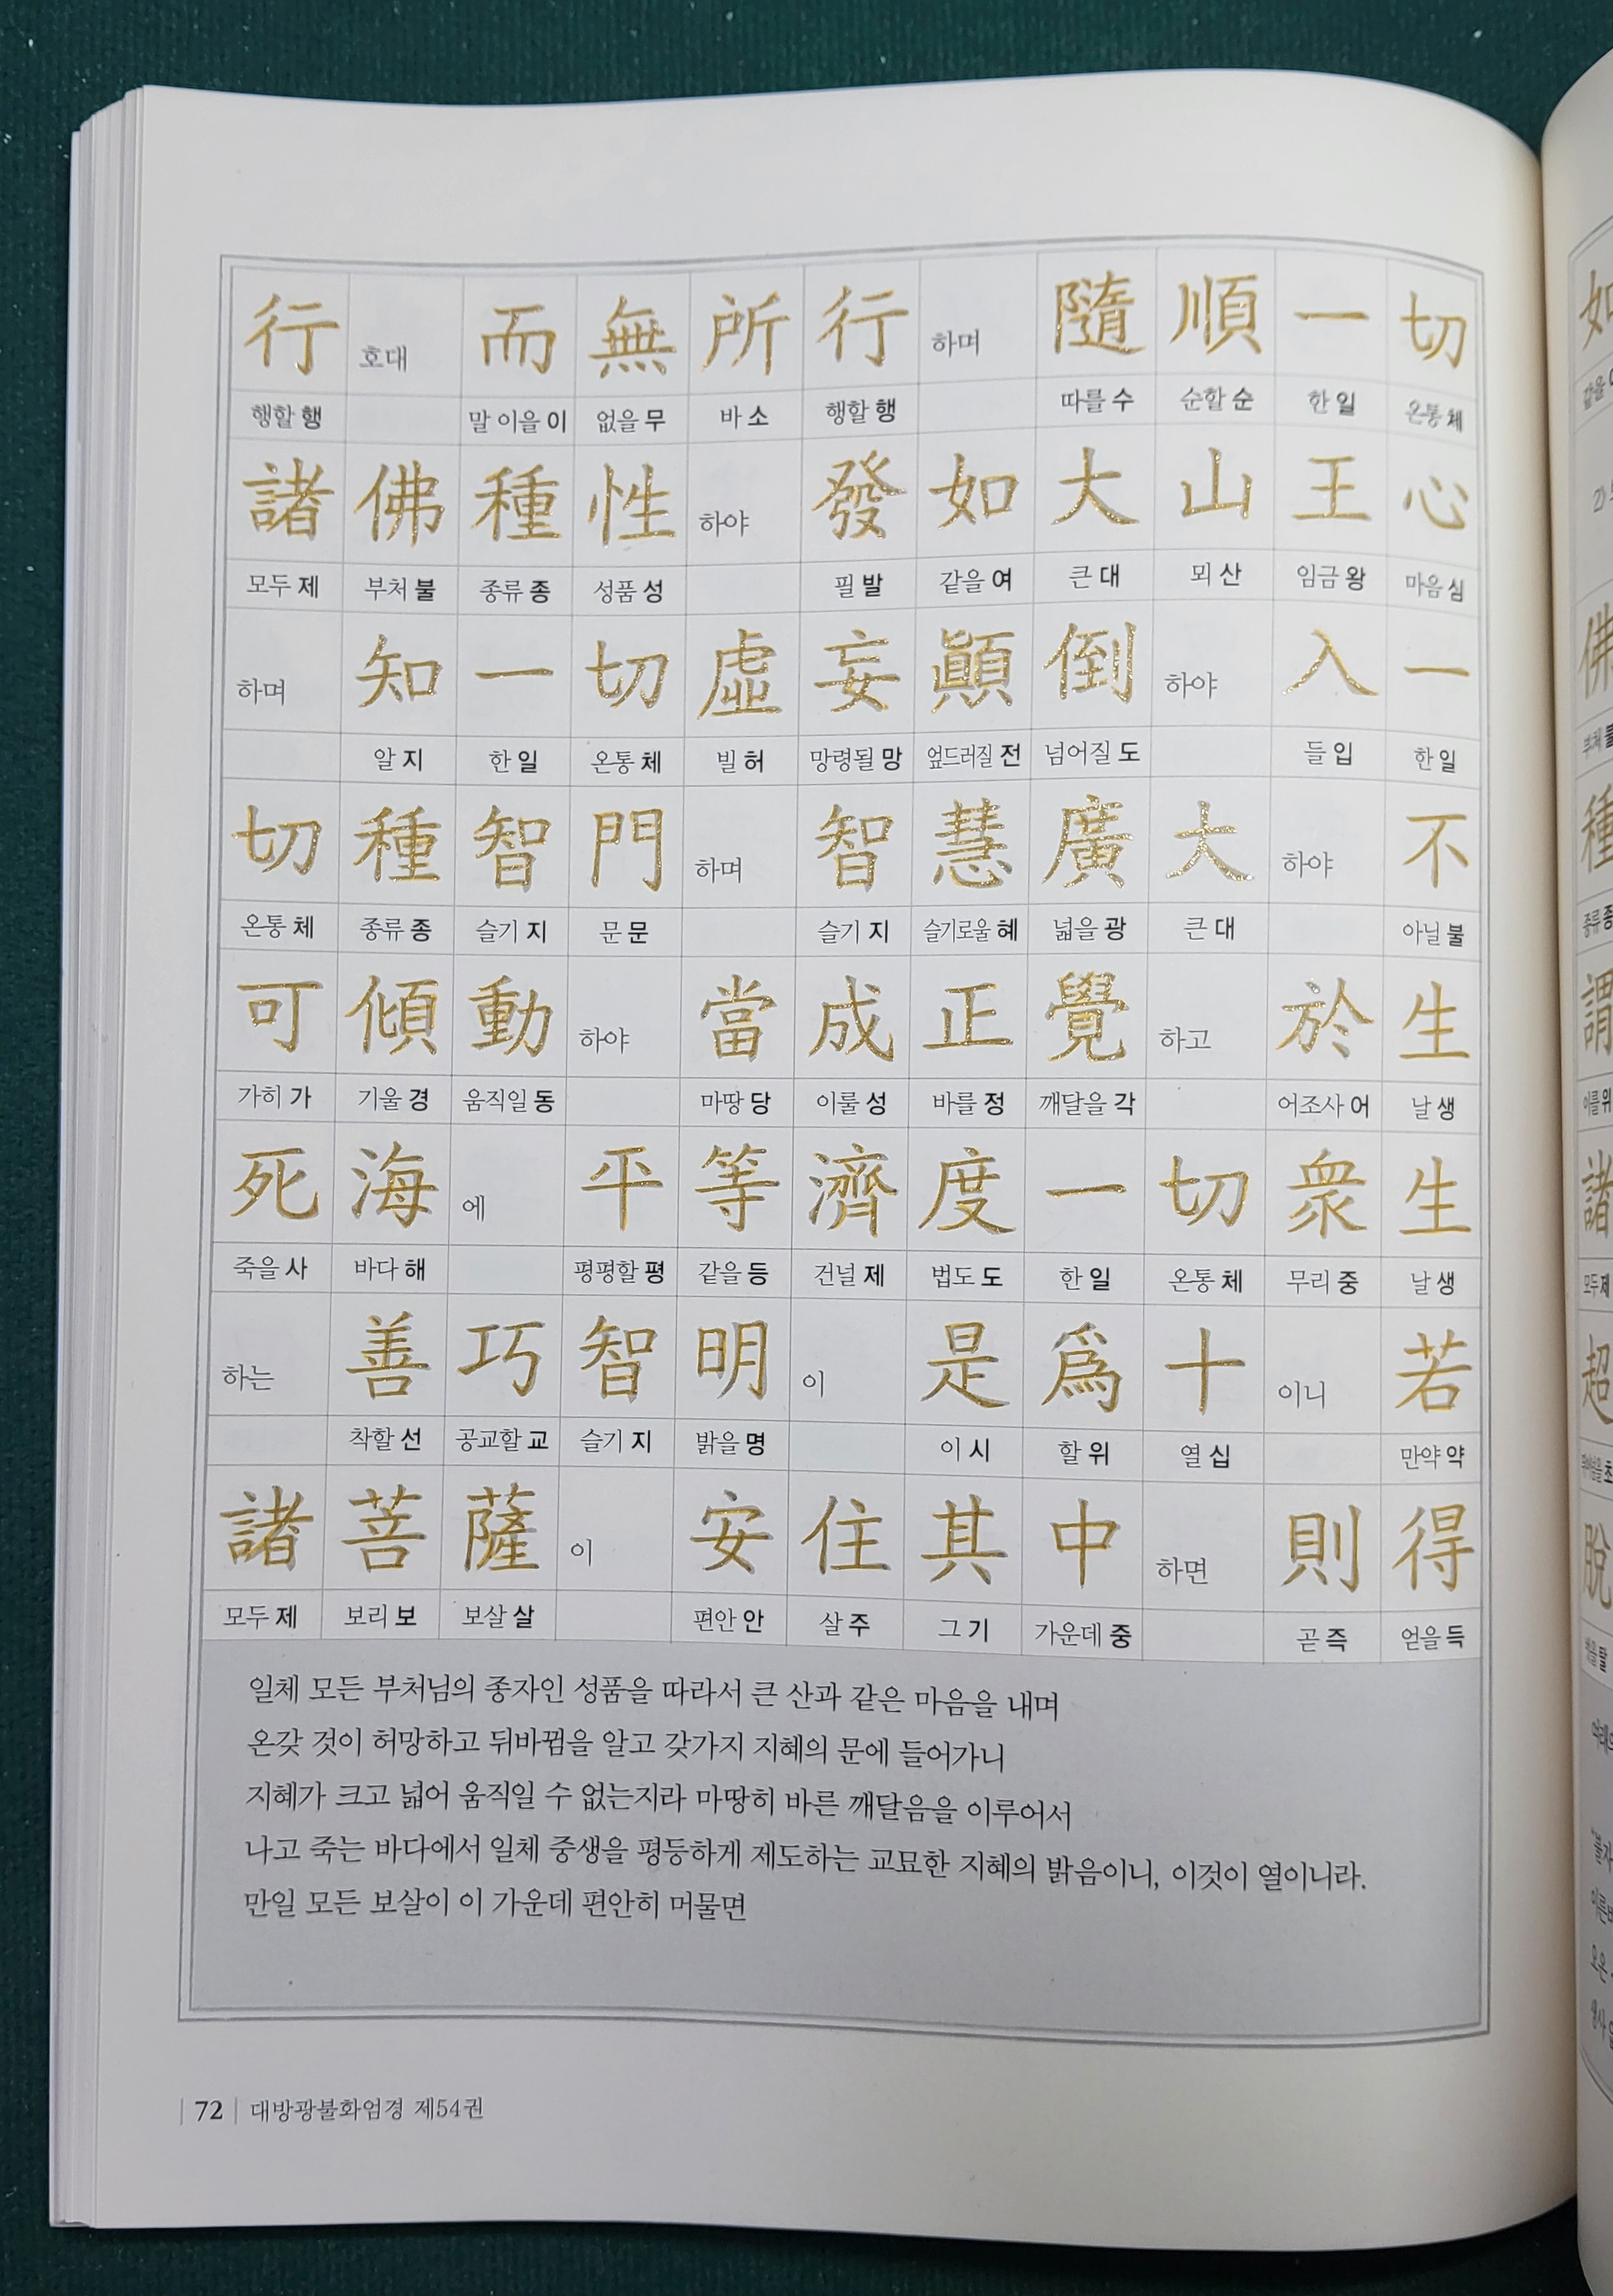 行 호대 而 無 所 行 하며 隨 順 一 切
행할 행 말 이을 이 없을 무 바 소 행할 행 따를 수 순할 순 한 일 온통 체
諸 佛 種 性 하야 發 如 大 山 王 心
모두 제 부처 불 종류 종 성품 성 필 발 같을 여 큰 대 뫼 산 임금 왕 마음 심
하며 知 一 切 虛 妄 顚 倒 하야 入 一
알 지 한 일 온통 체 빌 허 망령될 망 엎드러질 전 넘어질 도 들 입 한 일
切 種 智 門 하며 智 慧 廣 大 하야 不
온통 체 종류 종 슬기 지 문 문 슬기 지 슬기로울 혜 넓을 광 큰 대 아닐 불
可 傾 動 하야 當 成 正 覺 하고 於 生
가히 가 기울 경 움직일 동 마땅 당 이룰 성 바를 정 깨달을 각 어조사 어 날 생
死 海 에 平 等 濟 度 一 切 衆 生
죽을 사 바다 해 평평할 평 같을 등 건널 제 법도 도 한 일 온통 체 무리 중 날 생
하는 善 巧 智 明 이 是 爲 十 이니 若
착할 선 공교할 교 슬기 지 밝을 명 이 시 할 위 열 십 만약 약
諸 菩 薩 이 安 住 其 中 하면 則 得
모두 제 보리 보 보살 살 편안 안 살 주 그 기 가운데 중 곧 즉 얻을 득
일체 모든 부처님의 종자인 성품을 따라서 큰 산과 같은 마음을 내며
온갖 것이 허망하고 뒤바뀜을 알고 갖가지 지혜의 문에 들어가니
지혜가 크고 넓어 움직일 수 없는지라 마땅히 바른 깨달음을 이루어서
나고 죽는 바다에서 일체 중생을 평등하게 제도하는 교묘한 지혜의 밝음이니, 이것이 열이니라.
만일 모든 보살이 이 가운데 편안히 머물면
72 대방광불화엄경 제54권
如
佛
種
종류 종
謂
이를 위
諸
모두 제
超
脫